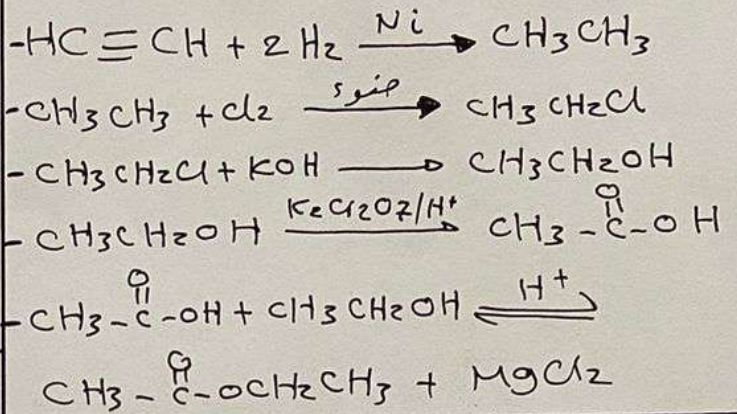 -HC≡CH + 2 H2 —Ni→ CH3CH3
-CH3CH3 + Cl2 —ضوء→ CH3CH2Cl
-CH3CH2Cl + KOH → CH3CH2OH
-CH3CH2OH —K2Cr2O7/H+→ CH3-C(=O)-OH
-CH3-C(=O)-OH + CH3CH2OH ⇌ H+
CH3-C(=O)-OCH2CH3 + MgCl2